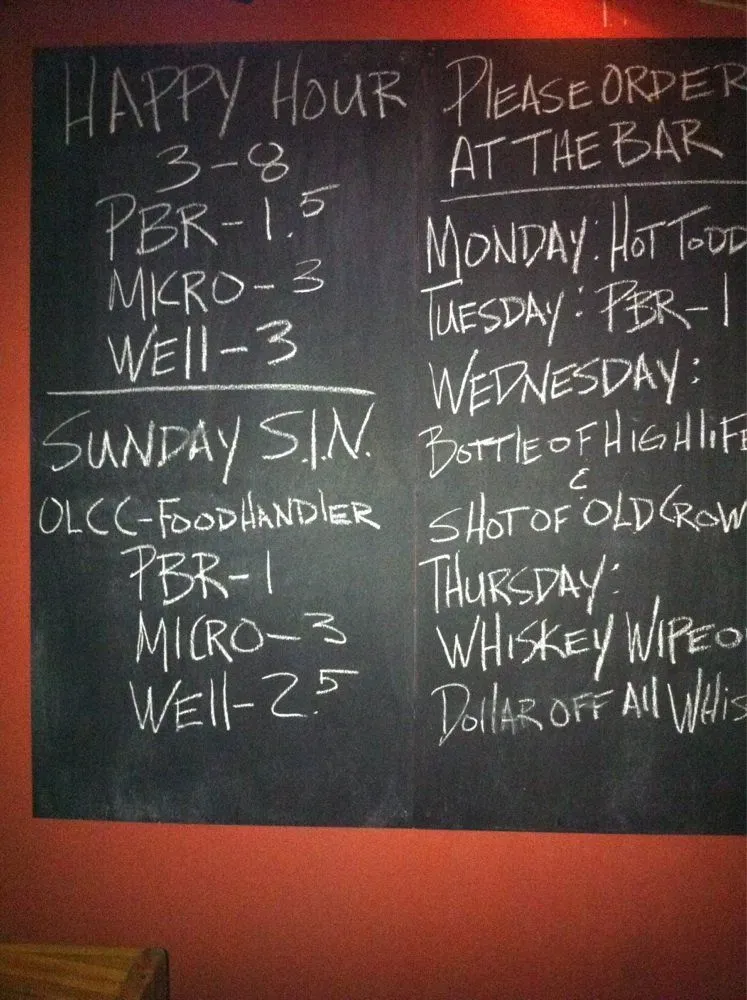 HAPPY HOUR
3-8
PBR-1.5
MICRO-3
WELL-3
SUNDAY S.I.N.
OLCC-FOODHANDLER
PBR-1
MICRO-3
WELL-2.5
PLEASE ORDER
AT THE BAR
MONDAY: HOT TODD
TUESDAY: PBR-1
WEDNESDAY:
BOTTLE OF HIGH LIFE
&
SHOT OF OLD CROW
THURSDAY:
WHISKEY WIPEO
DOLLAR OFF ALL WHIS